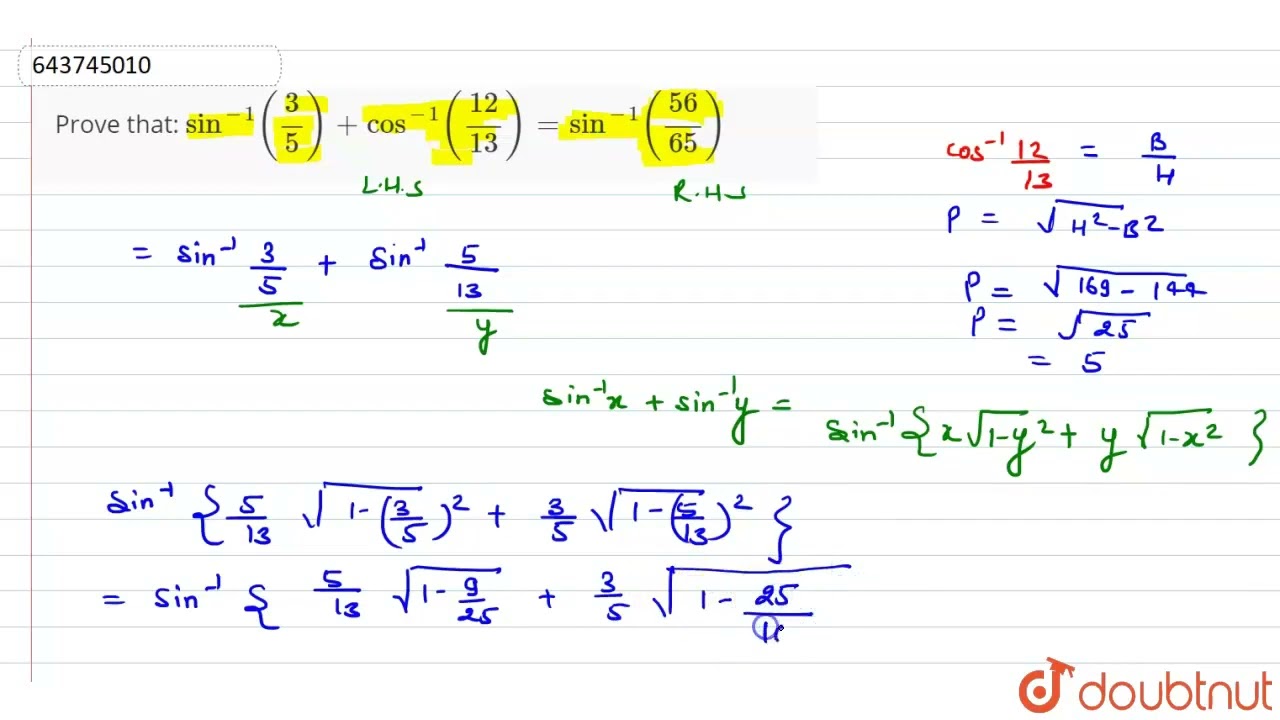 643745010
Prove that: sin⁻¹(3/5) + cos⁻¹(12/13) = sin⁻¹(56/65)
L.H.S R.H.S
cos⁻¹ 12/13 = B/H
P = √H²-B²
= sin⁻¹ 3/5 + sin⁻¹ 5/13
x y
P = √169 - 144
P = √25
= 5
sin⁻¹x + sin⁻¹y =
sin⁻¹{x√1-y² + y√1-x²}
sin⁻¹ {5/13 √1-(3/5)² + 3/5 √1-(5/13)²}
= sin⁻¹ { 5/13 √1-9/25 + 3/5 √1 - 25/1
doubtnut